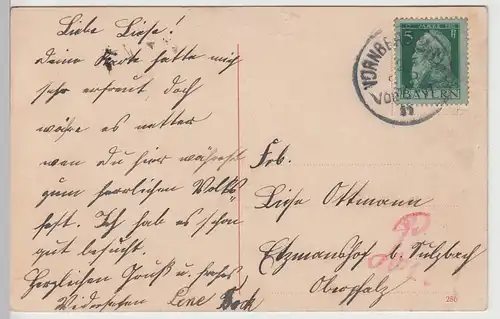 Liebe Liese!
Deine Karte hatte mich
sehr erfreut, doch
wäre es netter
wen du hier währest
zum herrlichen Volks-
fest. Ich hab es schon
gut besucht.
Herzlichen Gruß u. frohes
Wiedersehen Lene
5 Pf
BAYERN
Frl.
Liese Ottmann
Etzmanshof b. Sulzbach
Oberpfalz
286